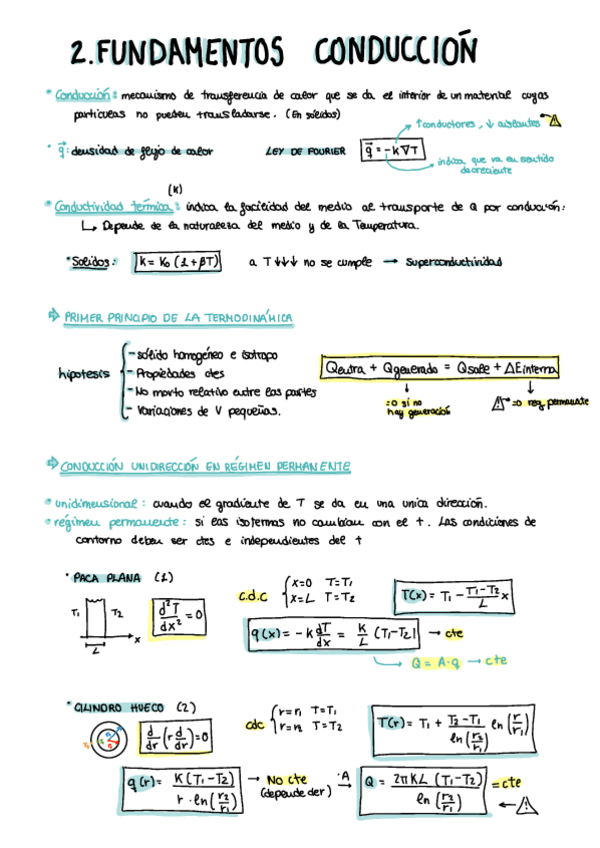 2. FUNDAMENTOS CONDUCCIÓN
* Conducción: mecanismo de transferencia de calor que se da el interior de un material cuyas
partículas no pueden transladarse. (En sólidos)
↑ conductores, ↓ aislantes
* q⃗: densidad de flujo de calor LEY DE FOURIER q⃗ = -k∇T
indica que va en sentido
decreciente
(k)
* Conductividad térmica: indica la facilidad del medio al transporte de Q por conducción:
↳ Depende de la naturaleza del medio y de la Temperatura.
* Solidos: k = k₀ (1 + βT) a T ↓↓↓ no se cumple → Superconductividad
⇒ PRIMER PRINCIPIO DE LA TERMODINÁMICA
hipotesis
- sólido homogéneo e isotropo
- Propiedades ctes
- No movto relativo entre las partes
- Variaciones de V pequeñas.
Qentra + Qgenerado = Qsale + ΔEinterna
=0 si no
hay generación
=0 reg permanente
⇒ CONDUCCIÓN UNIDIRECCIÓN EN RÉGIMEN PERMANENTE
* unidimensional: cuando el gradiente de T se da en una unica dirección.
* régimen permanente: si las isotermas no cambian con el t. Las condiciones de
contorno deben ser ctes e independientes del t
* PACA PLANA (1)
T₁ T₂ L x
d²T/dx² = 0
c.d.c { x=0 T=T₁
x=L T=T₂
T(x) = T₁ - (T₁-T₂)/L x
q(x) = -k dT/dx = k/L (T₁-T₂) → cte
Q = A·q → cte
* CILINDRO HUECO (2)
d/dr (r d/dr) = 0
cdc { r=r₁ T=T₁
r=r₂ T=T₂
T(r) = T₁ + (T₂-T₁)/ln(r₂/r₁) ln(r/r₁)
q(r) = K(T₁-T₂)/(r·ln(r₂/r₁)) → No cte
(depende de r)
·A → Q = 2πKL (T₁-T₂)/ln(r₂/r₁) = cte